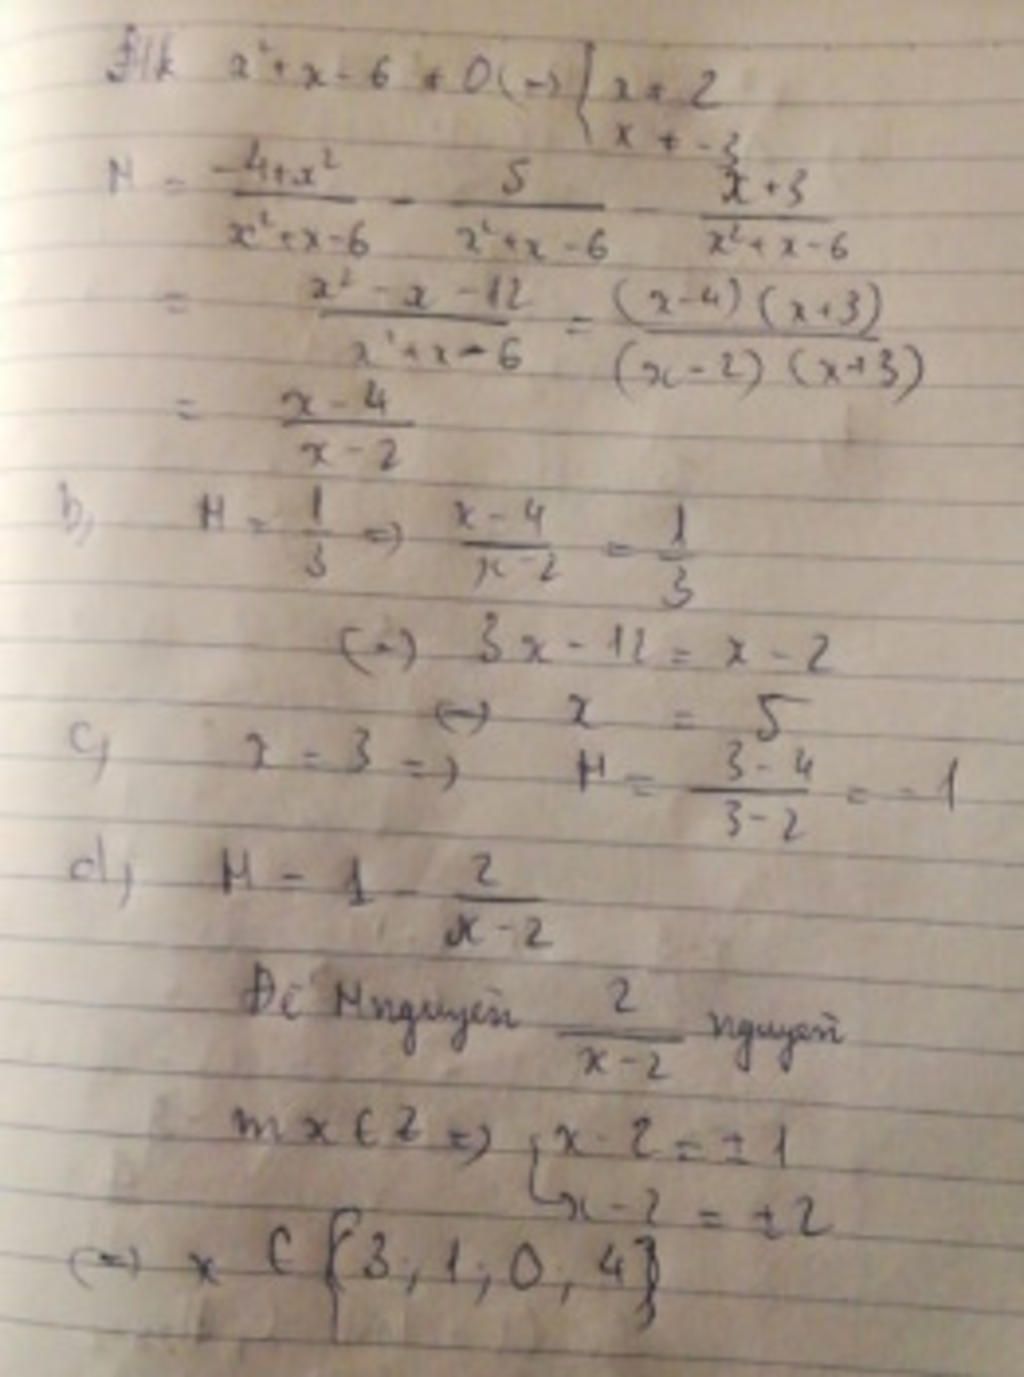 Đk x² + x - 6 ≠ 0 (=) { x ≠ 2
x ≠ -3
M = (-4+x²)/(x²+x-6) - 5/(x²+x-6) - (x+3)/(x²+x-6)
= (x²-x-12)/(x²+x-6) = ((x-4)(x+3))/((x-2)(x+3))
= (x-4)/(x-2)
b, M = 1/3 => (x-4)/(x-2) = 1/3
(=) 3x - 12 = x - 2
(=) x = 5
c, x = 3 => M = (3-4)/(3-2) = -1
d, M = 1 - 2/(x-2)
Để M nguyên 2/(x-2) nguyên
mà x ∈ Z => [ x-2 = ±1
x-2 = ±2
(=) x ∈ {3; 1; 0; 4}